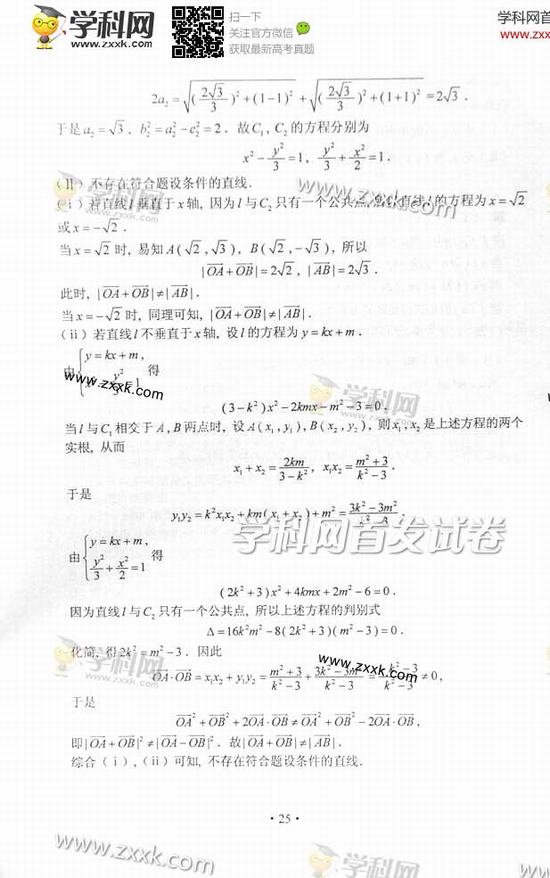 学科网
www.zxxk.com
扫一下
关注官方微信
获取最新高考真题
学科网首
www.zxxk
2a₂ = √((2√3/3)² + (1−1)²) + √((2√3/3)² + (1+1)²) = 2√3 .
于是 a₂ = √3 , b₂² = a₂² − c₂² = 2 . 故 C₁, C₂ 的方程分别为
x² − y²/3 = 1 , y²/3 + x²/2 = 1 .
(Ⅱ) 不存在符合题设条件的直线 .
(ⅰ) 若直线 l 垂直于 x 轴, 因为 l 与 C₂ 只有一个公共点, 直线 l 的方程为 x = √2
www.zxxk.com
或 x = −√2 .
当 x = √2 时, 易知 A(√2, √3) , B(√2, −√3) , 所以
|OA + OB| = 2√2 , |AB| = 2√3 .
此时, |OA + OB| ≠ |AB| .
当 x = −√2 时, 同理可知, |OA + OB| ≠ |AB| .
(ⅱ) 若直线 l 不垂直于 x 轴, 设 l 的方程为 y = kx + m .
由 { y = kx + m , x² − y²/3 = 1 得
www.zxxk.com
学科网
www.zxxk.com
(3 − k²)x² − 2kmx − m² − 3 = 0 .
当 l 与 C₁ 相交于 A , B 两点时, 设 A(x₁, y₁) , B(x₂, y₂) , 则 x₁, x₂ 是上述方程的两个
实根, 从而
x₁ + x₂ = 2km/(3 − k²) , x₁x₂ = (m² + 3)/(k² − 3) .
于是
y₁y₂ = k²x₁x₂ + km(x₁ + x₂) + m² = (3k² − 3m²)/(k² − 3) .
学科网首发试卷
由 { y = kx + m , y²/3 + x²/2 = 1 得
(2k² + 3)x² + 4kmx + 2m² − 6 = 0 .
因为直线 l 与 C₂ 只有一个公共点, 所以上述方程的判别式
Δ = 16k²m² − 8(2k² + 3)(m² − 3) = 0 .
化简, 得 2k² = m² − 3 . 因此
学科网
www.zxxk.com
www.zxxk.com
OA · OB = x₁x₂ + y₁y₂ = (m² + 3)/(k² − 3) + (3k² − 3m²)/(k² − 3) = (−k² − 3)/(k² − 3) ≠ 0 ,
于是
OA² + OB² + 2OA · OB ≠ OA² + OB² − 2OA · OB ,
即 |OA + OB|² ≠ |OA − OB|² . 故 |OA + OB| ≠ |AB| .
综合 (ⅰ), (ⅱ) 可知, 不存在符合题设条件的直线 .
· 25 ·
www.zxxk.com
学科网
www.zxxk.com